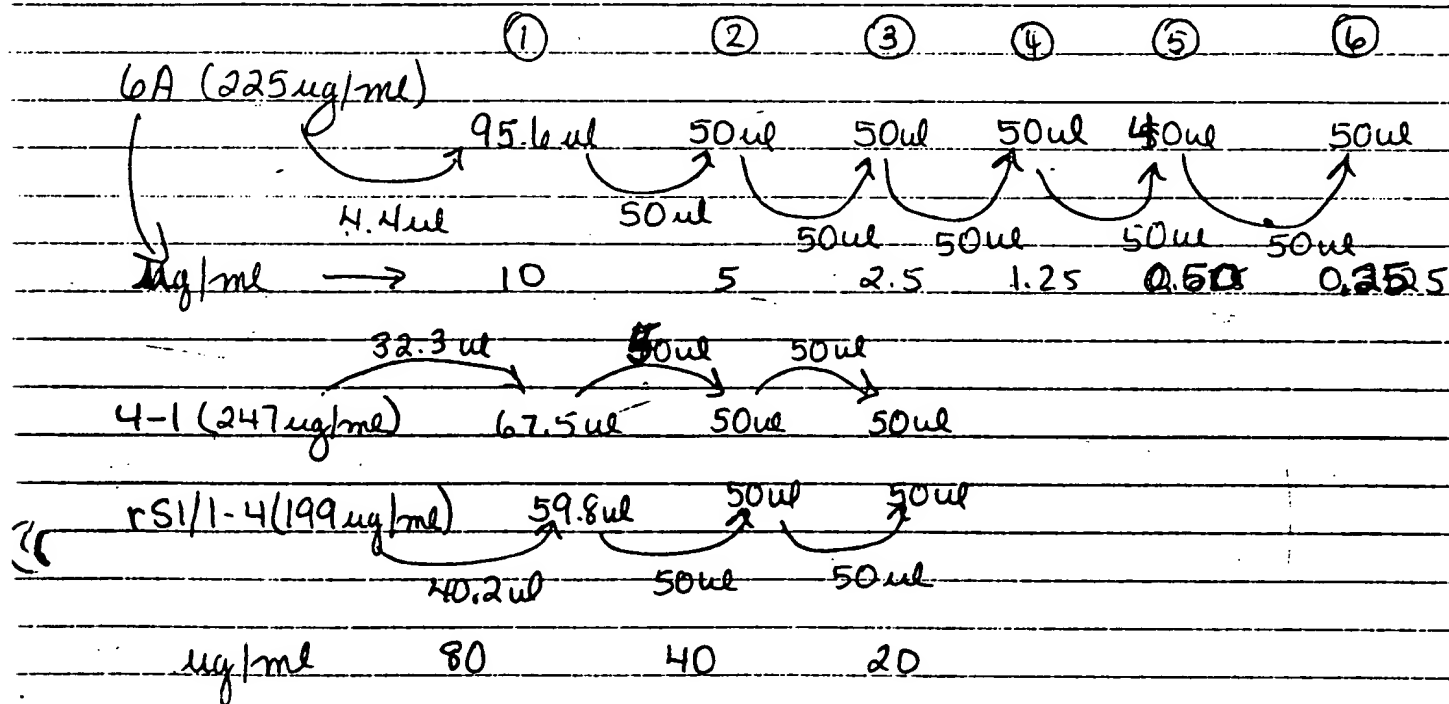 ① ② ③ ④ ⑤ ⑥
6A (225ug/ml)
95.6ul 50ul 50ul 50ul 50ul 50ul
4.4ul 50ul 50ul 50ul 50ul 50ul
ug/ml → 10 5 2.5 1.25
32.3 ul 50ul 50ul
4-1 (247ug/ml) 67.5ul 50ul 50ul
rS1/1-4(199ug/ml) 59.8ul 50ul 50ul
40.2ul 50ul 50ul
ug/ml 80 40 20